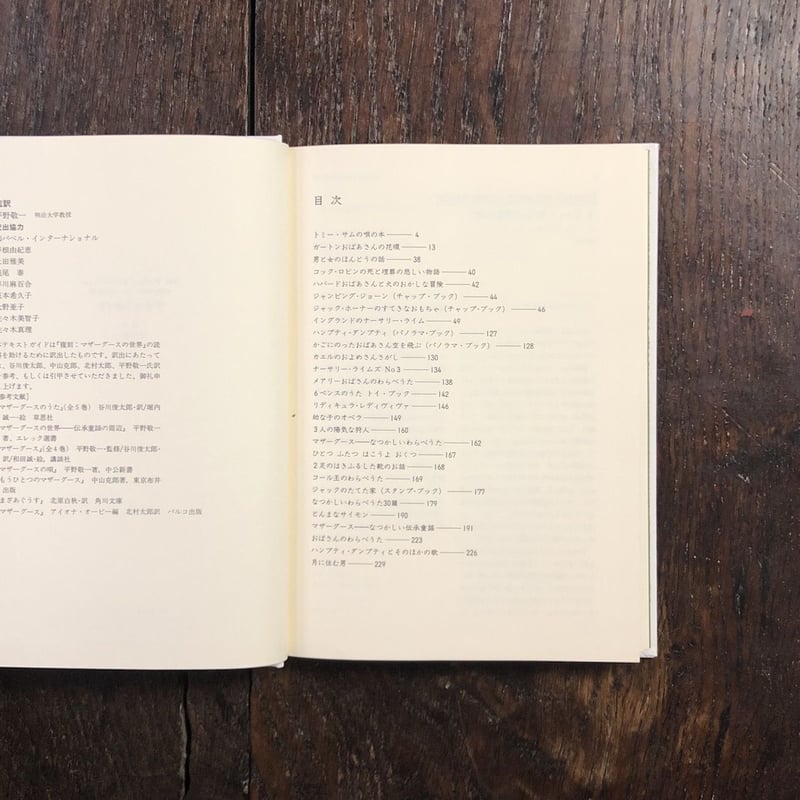 訳
平野敬一 明治大学教授
訳出協力
バベル・インターナショナル
根由紀恵
上田雅美
尾 泰
早川麻百合
坂本希久子
大野亜子
佐々木美智子
佐々木真理
本テキストガイドは『復刻：マザーグースの世界』の読
を助けるために訳出したものです。訳出にあたって
は、谷川俊太郎、中山克郎、北村太郎、平野敬一氏訳
参考、もしくは引用させていただきました。御礼申
上げます。
参考文献］
マザーグースのうた』（全5巻） 谷川俊太郎・訳/堀内
誠一・絵 草思社
マザーグースの世界——伝承童謡の周辺』 平野敬一
著、エレック選書
マザーグース』（全4巻） 平野敬一・監修/谷川俊太郎・
訳/和田誠・絵、講談社
マザーグースの唄』 平野敬一著、中公新書
もうひとつのマザーグース』 中山克郎著、東京布井
出版
まざあぐうす』 北原白秋・訳 角川文庫
マザーグース』 アイオナ・オーピー編 北村太郎訳 パルコ出版
目次
トミー・サムの唄の本——4
ガートンおばあさんの花環——13
男と女のほんとうの話——38
コック・ロビンの死と埋葬の悲しい物語——40
ハバードおばあさんと犬のおかしな冒険——42
ジャンピング・ジョーン（チャップ・ブック）——44
ジャック・ホーナーのすてきなおもちゃ（チャップ・ブック）——46
イングランドのナーサリー・ライム——49
ハンプティ・ダンプティ（パノラマ・ブック）——127
かごにのったおばあさん空を飛ぶ（パノラマ・ブック）——128
カエルのおよめさんさがし——130
ナーサリー・ライムズ No3——134
メアリーおばさんのわらべうた——138
6ペンスのうた トイ・ブック——142
リディキュラ・レディヴィヴァ——146
幼な子のオペラ——149
3人の陽気な狩人——160
マザーグース——なつかしいわらべうた——162
ひとつ ふたつ はこうよ おくつ——167
2足のはきふるした靴のお話——168
コール王のわらべうた——169
ジャックのたてた家（スタンプ・ブック）——177
なつかしいわらべうた30篇——179
とんまなサイモン——190
マザーグース——なつかしい伝承童謡——191
おばさんのわらべうた——223
ハンプティ・ダンプティとそのほかの歌——226
月に住む男——229